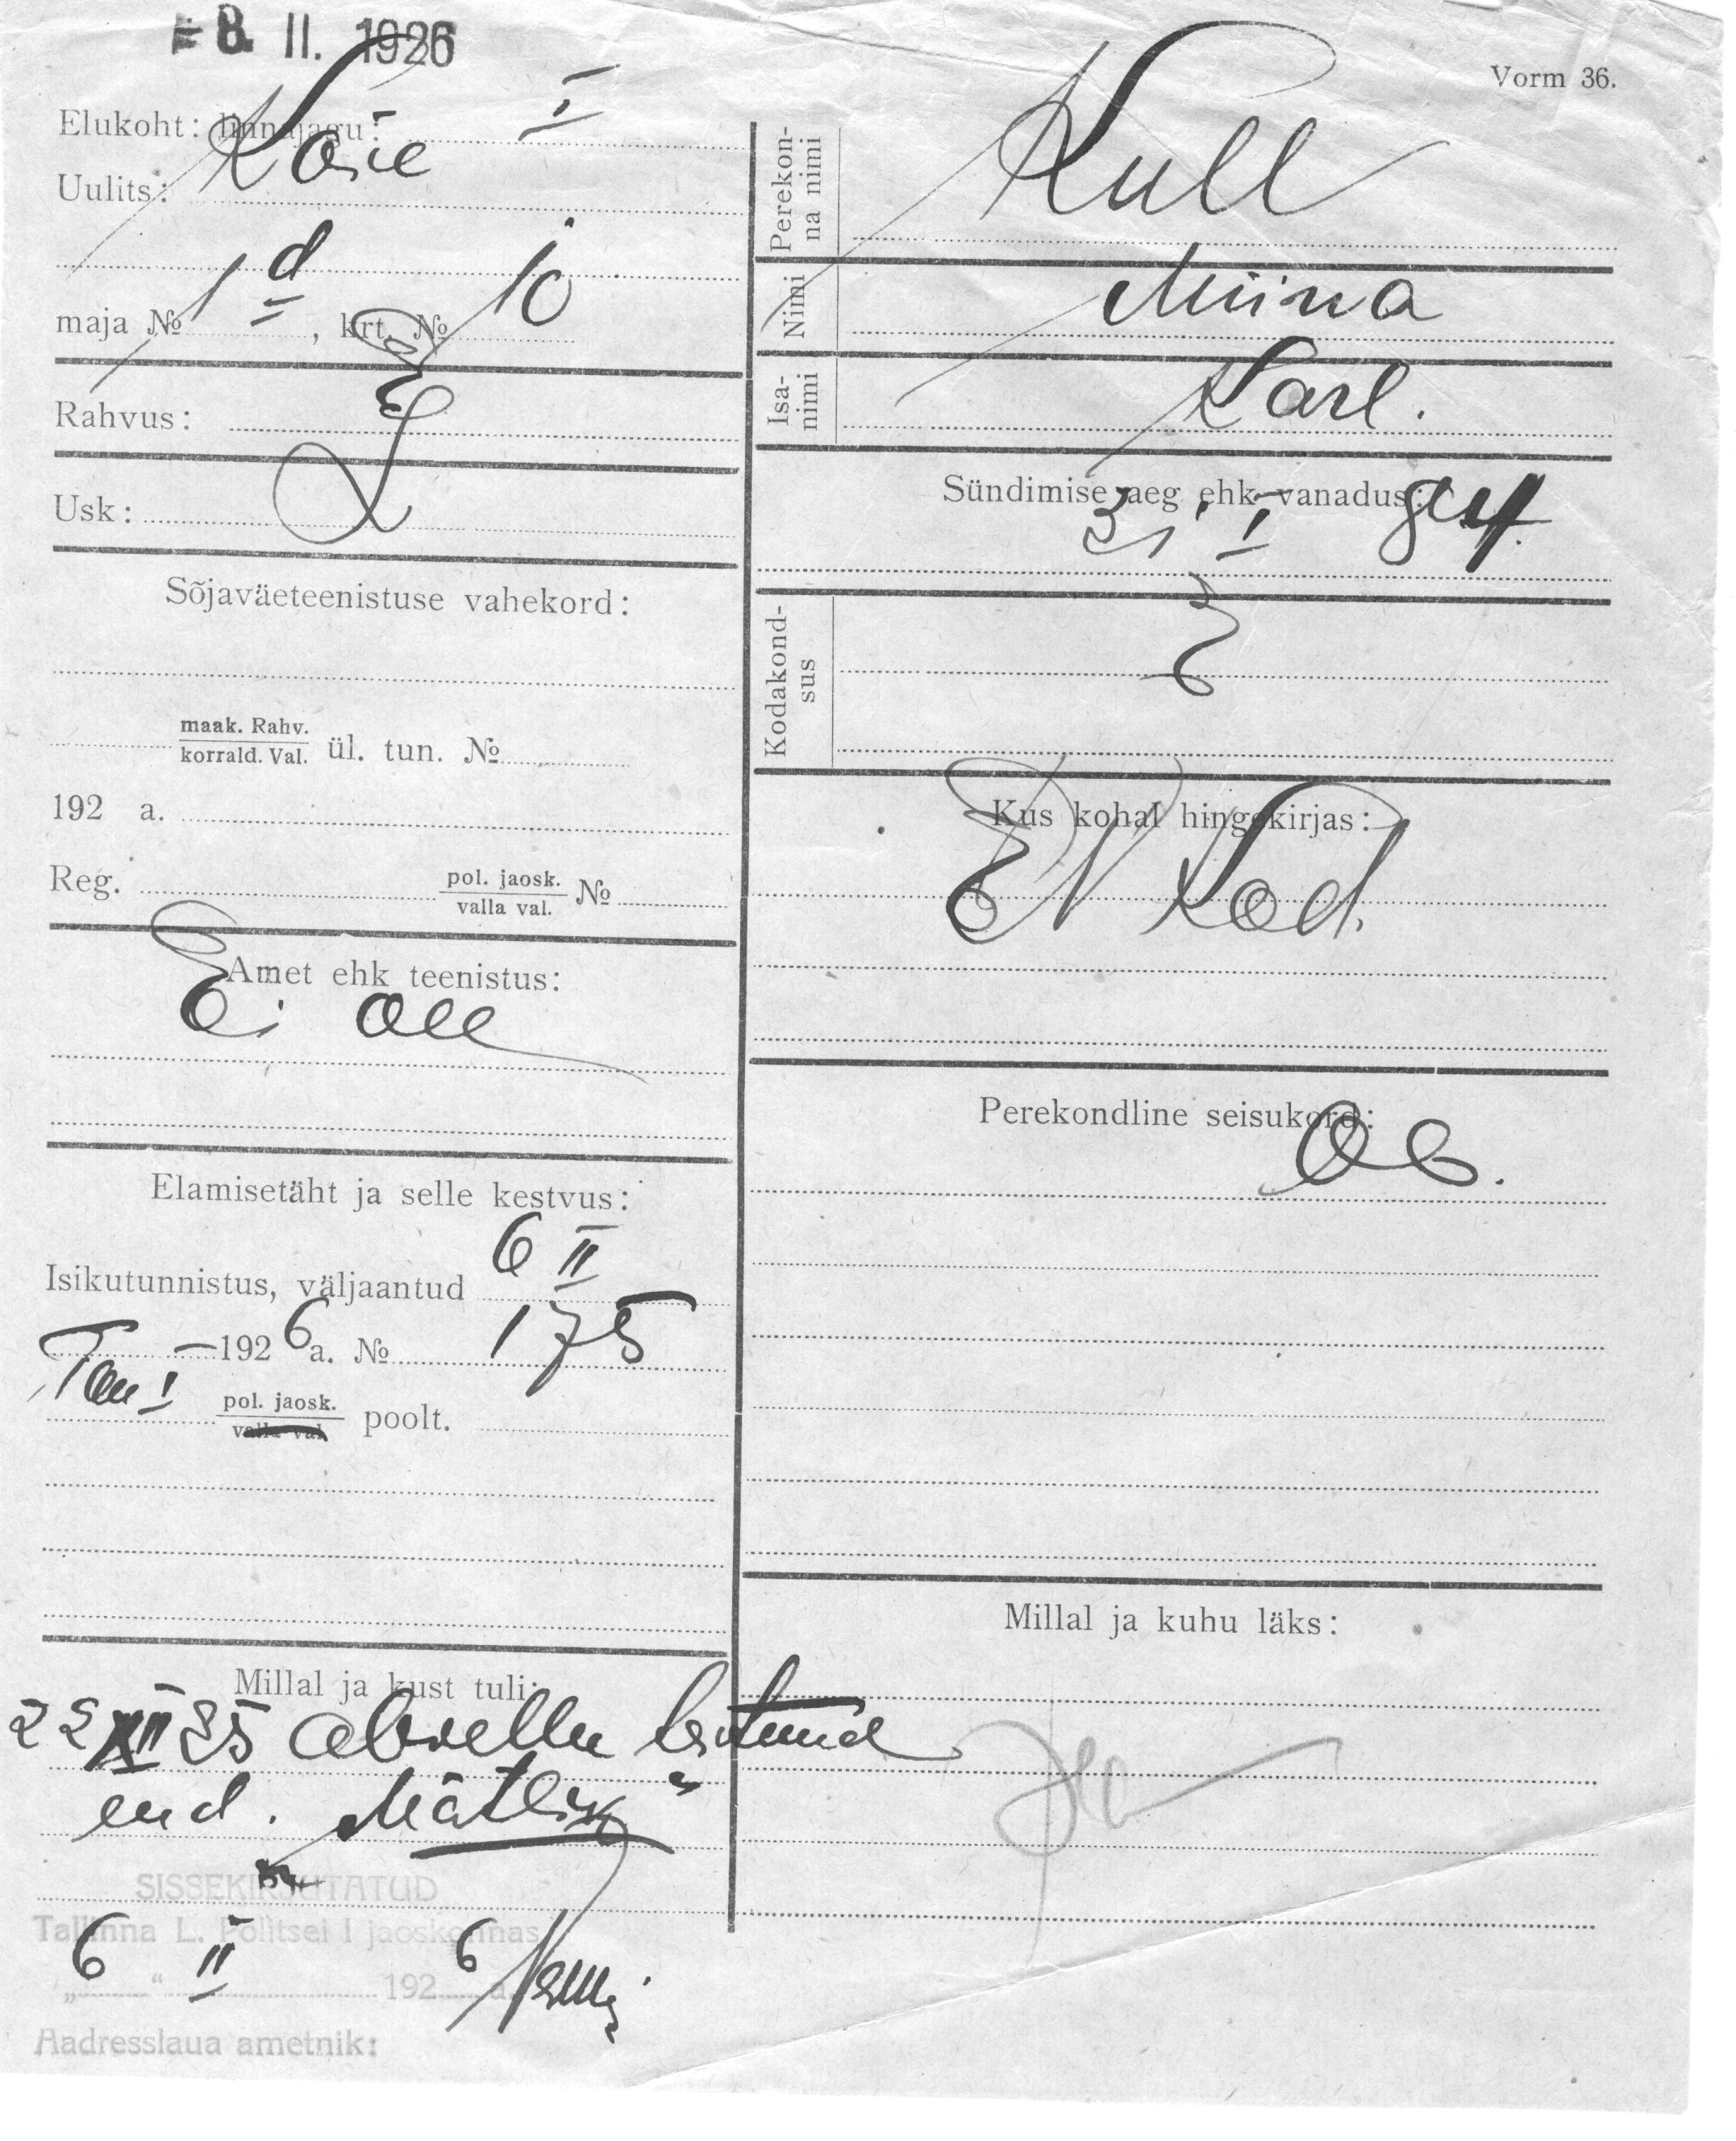 8. II. 1926
Vorm 36.
Elukoht: linnajagu: I
Uulits: Kosie
maja № 1 d, krt. № 10
Rahvus: E
Usk: L
Sõjaväeteenistuse vahekord:
maak. Rahv.
korrald. Val. ül. tun. №
192 a.
Reg. pol. jaosk.
valla val. №
Amet ehk teenistus:
Ei ole
Elamisetäht ja selle kestvus:
Isikutunnistus, väljaantud 6 II
1926 a. № 175
Tall I pol. jaosk.
valla val. poolt.
Millal ja kust tuli:
22 XII 25 abiellu
end. "Mätlik"
SISSEKIRJUTATUD
Tallinna L. Politsei I jaoskonnas
„6“ II 1926 a.
Aadresslaua ametnik:
Perekon-
na nimi Kull
Nimi Miina
Isa-
nimi Karl.
Sündimise aeg ehk vanadus:
31 I
Kodakond-
sus E
Kus kohal hingekirjas:
EV Kod.
Perekondline seisukord:
Ab.
Millal ja kuhu läks: